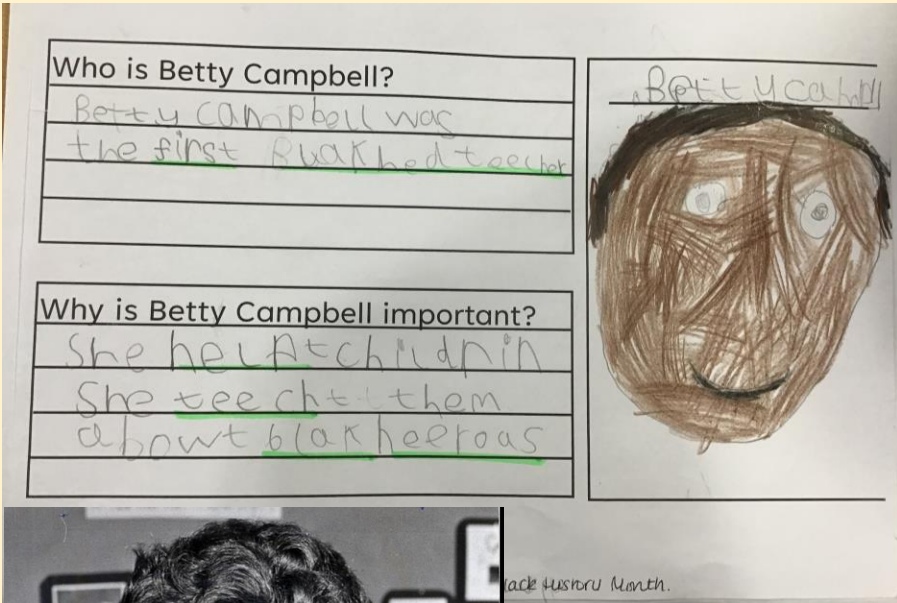 Who is Betty Campbell?
Betty Campbell was
the first Blak hed teecher
Why is Betty Campbell important?
She helpt childnin
She teecht them
abowt blak heeroas
Betty campl
lack History Month.